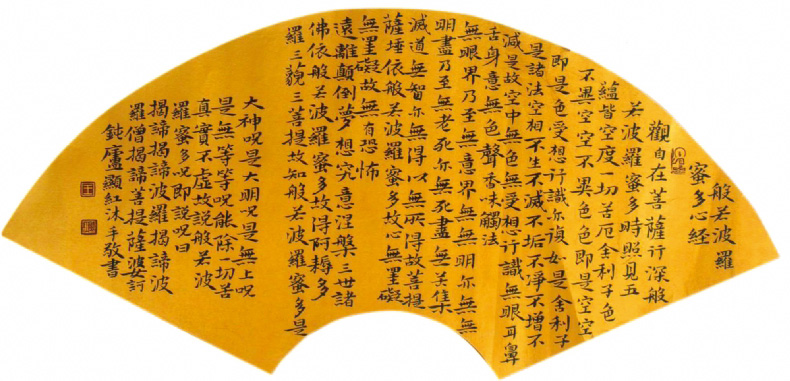 般若波羅
蜜多心經
觀自在菩薩行深般
若波羅蜜多時照見五
蘊皆空度一切苦厄舍利子色
不異空空不異色色即是空空
即是色受想行識尒復如是舍利子
是諸法空相不生不滅不垢不淨不增不
減是故空中無色無受想行識無眼耳鼻
舌身意無色聲香味觸法
無眼界乃至無意界無無明尒無無
明盡乃至無老死尒無死盡無苦集
滅道無智尒無得以無所得故菩提
薩埵依般若波羅蜜多故心無罣礙
無罣礙故無有恐怖
遠離顛倒夢想究竟涅槃三世諸
佛依般若波羅蜜多故得阿耨多
羅三藐三菩提故知般若波羅蜜多是
大神咒是大明咒是無上咒
是無等等咒能除一切苦
真實不虛故說般若波
羅蜜多咒即說咒曰
揭諦揭諦波羅揭諦波
羅僧揭諦菩提薩婆訶
廬顯紅沐手敬書